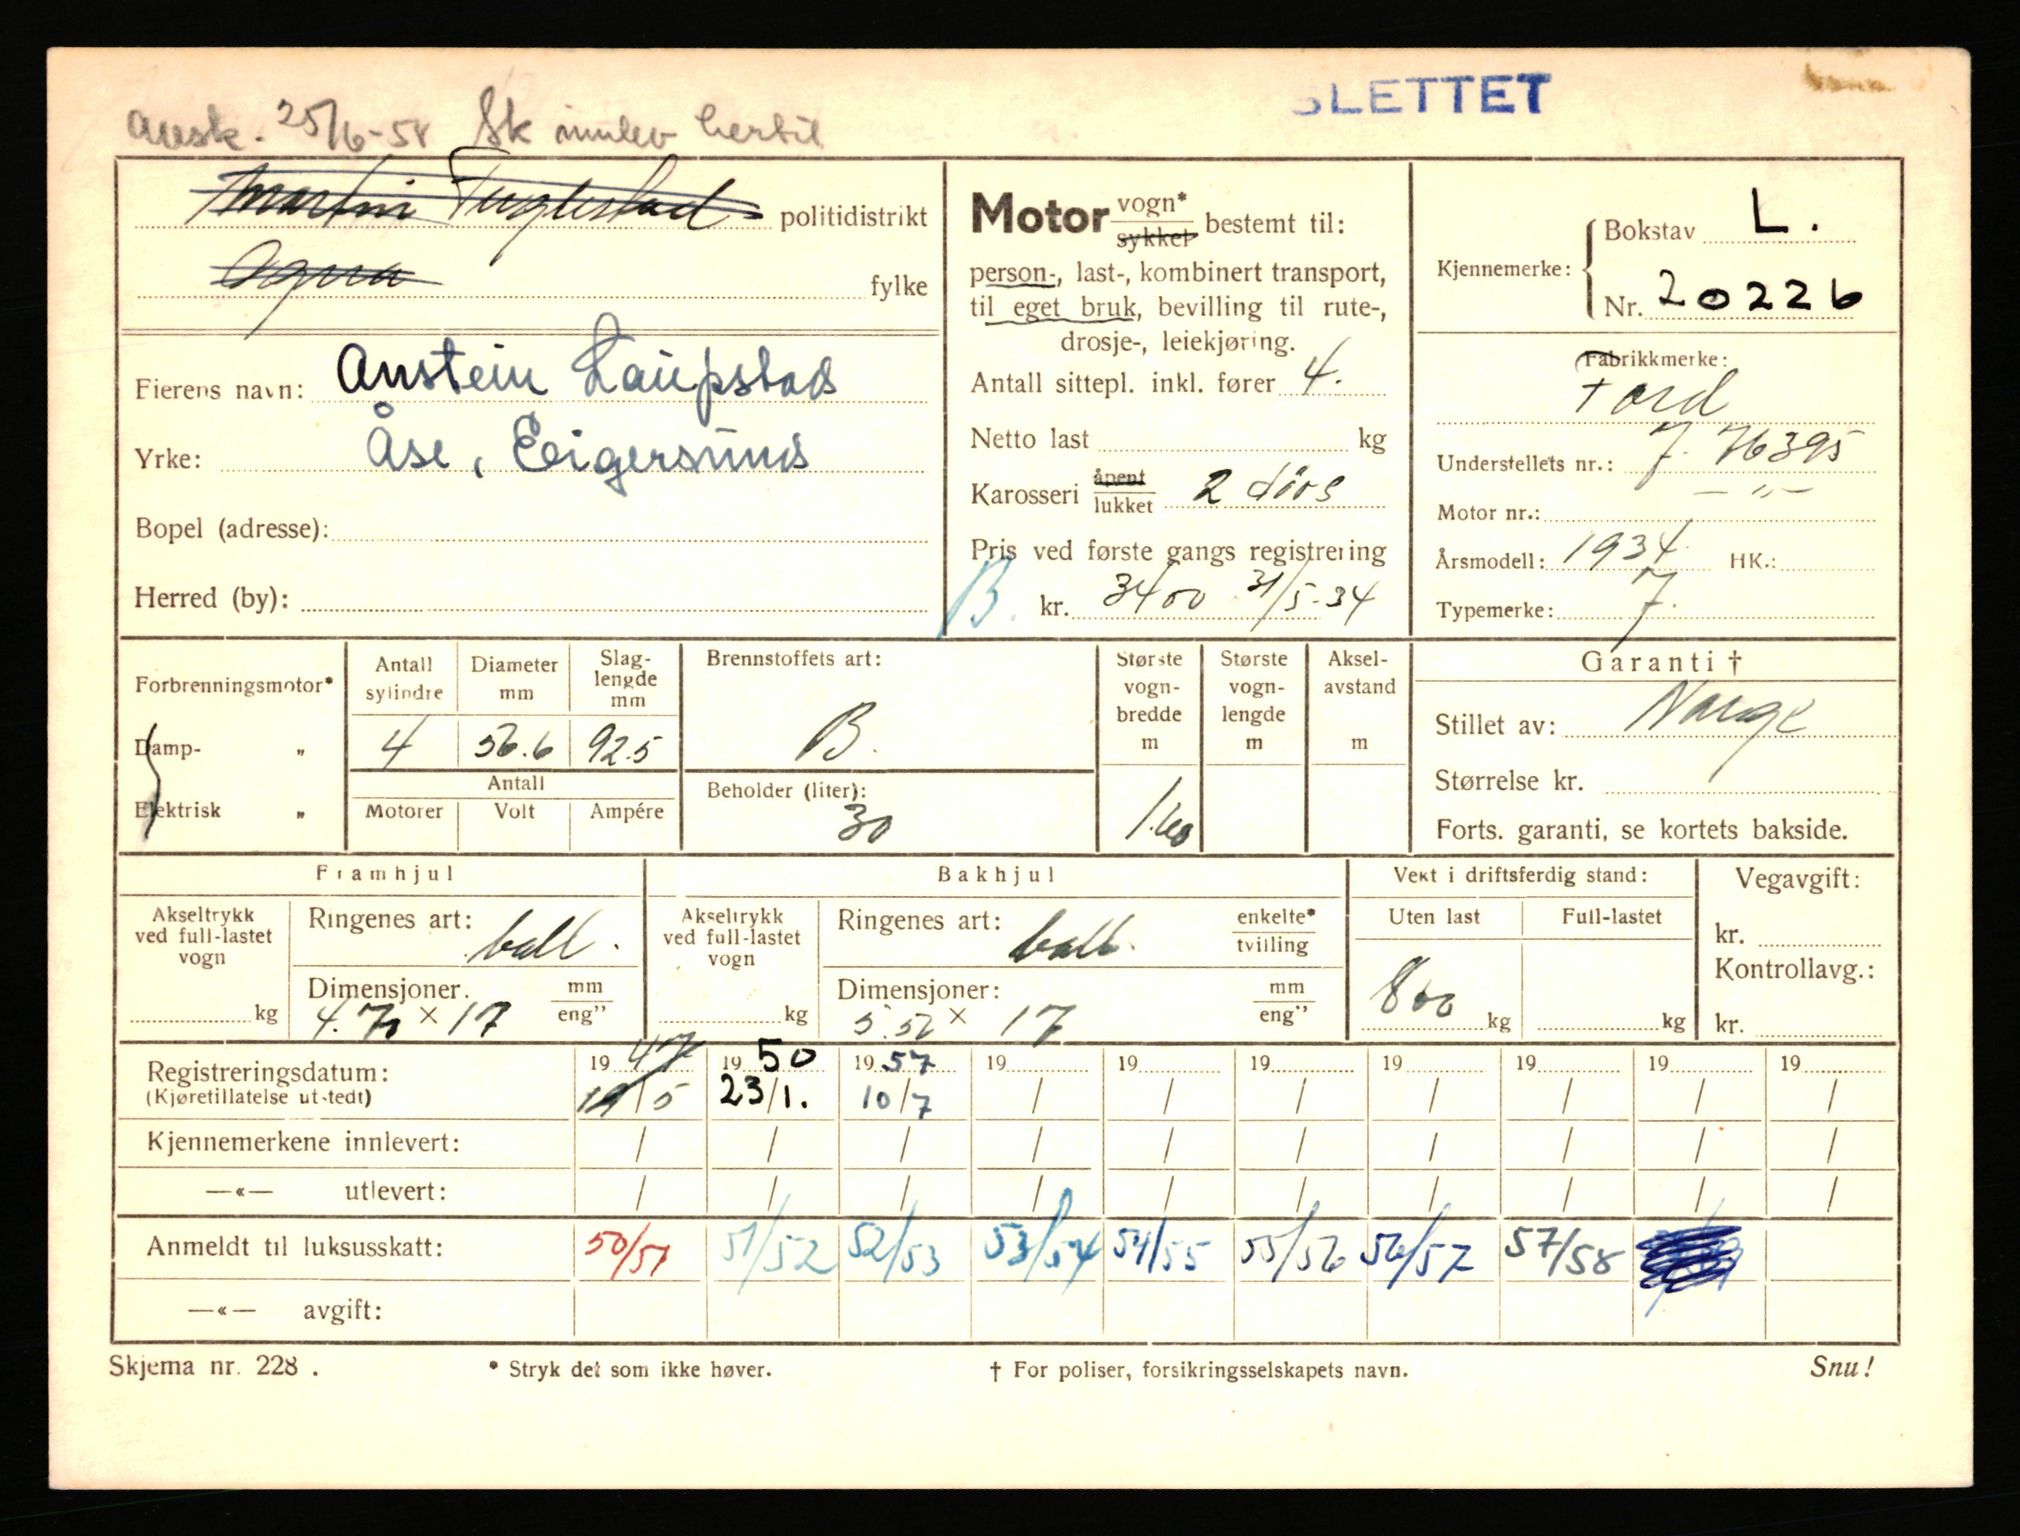 SLETTET
avsk. 25/6-58 Sk innlev hertil
Martin Fuglestad politidistrikt
Ogna fylke
Eierens navn: Anstein Laupstad
Yrke: Åse, Eigersund
Bopel (adresse):
Herred (by):
Motor vogn* sykkel bestemt til:
person-, last-, kombinert transport,
til eget bruk, bevilling til rute-,
drosje-, leiekjøring.
Antall sittepl. inkl. fører 4.
Netto last kg
Karosseri åpent lukket 2 dörs
Pris ved første gangs registrering
B. kr. 3400 31/5-34
Kjennemerke: Bokstav L.
Nr. 20226
Fabrikkmerke:
Ford
Understellets nr.: 7. 76395
Motor nr.: — " —
Årsmodell: 1934 HK.:
Typemerke: 7.
Forbrenningsmotor*
Damp- "
Elektrisk "
Antall sylindre Diameter mm Slag-lengde mm
4 56.6 92.5
Antall
Motorer Volt Ampére
Brennstoffets art:
B.
Beholder (liter):
30
Største vogn-bredde m Største vogn-lengde m Aksel-avstand m
1.60
Garanti †
Stillet av: Norge
Størrelse kr.
Forts. garanti, se kortets bakside.
Framhjul
Akseltrykk ved full-lastet vogn kg
Ringenes art: ball.
Dimensjoner. mm eng"
4.70 × 17
Bakhjul
Akseltrykk ved full-lastet vogn kg
Ringenes art: ball. enkelte* tvilling
Dimensjoner: mm eng"
5.50 × 17
Vekt i driftsferdig stand:
Uten last Full-lastet
800 kg kg
Vegavgift:
kr.
Kontrollavg.:
kr.
Registreringsdatum: 19 47 19 50 19 57 19 19 19 19 19 19 19
(Kjøretillatelse utstedt) 19/5 23/1. 10/7 / / / / / / /
Kjennemerkene innlevert: / / / / / / / / / /
—«— utlevert: / / / / / / / / / /
Anmeldt til luksusskatt: 50/51 51/52 52/53 53/54 54/55 55/56 56/57 57/58
—«— avgift:
Skjema nr. 228 . * Stryk det som ikke høver. † For poliser, forsikringsselskapets navn. Snu!